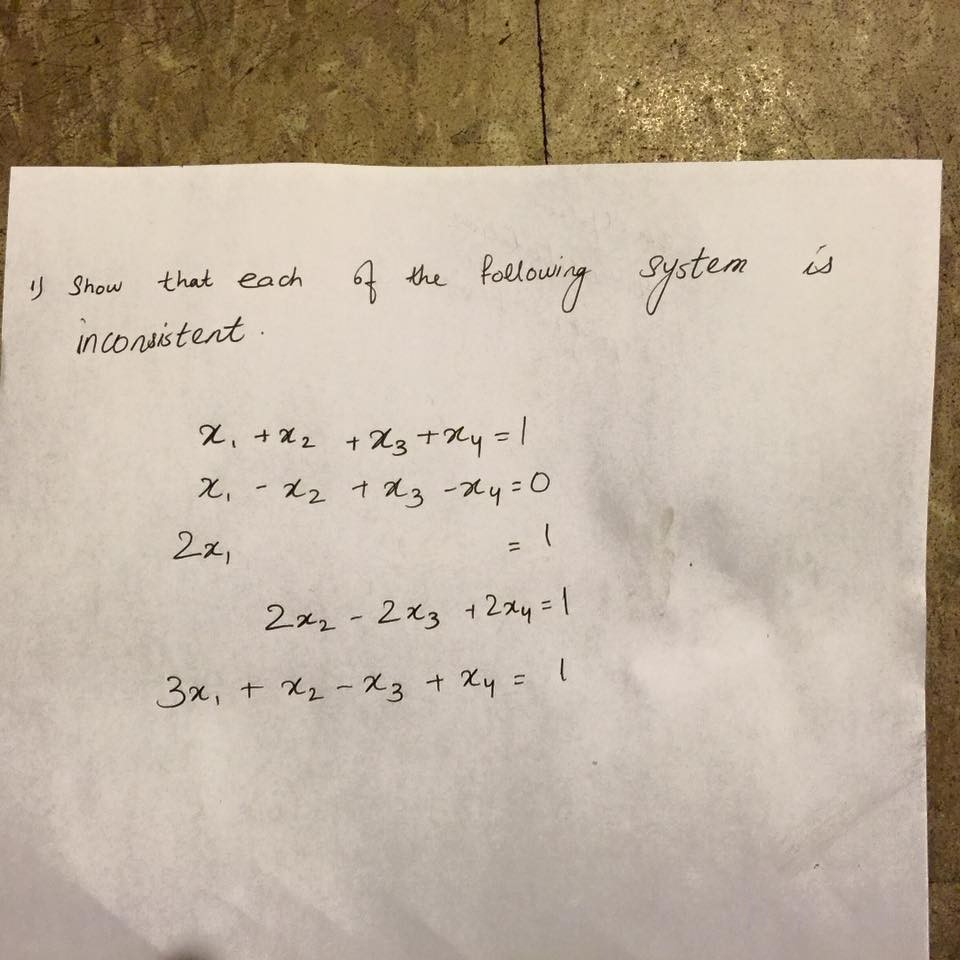 1) Show that each of the following system is
inconsistent.
x₁ + x₂ + x₃ + x₄ = 1
x₁ - x₂ + x₃ - x₄ = 0
2x₁ = 1
2x₂ - 2x₃ + 2x₄ = 1
3x₁ + x₂ - x₃ + x₄ = 1